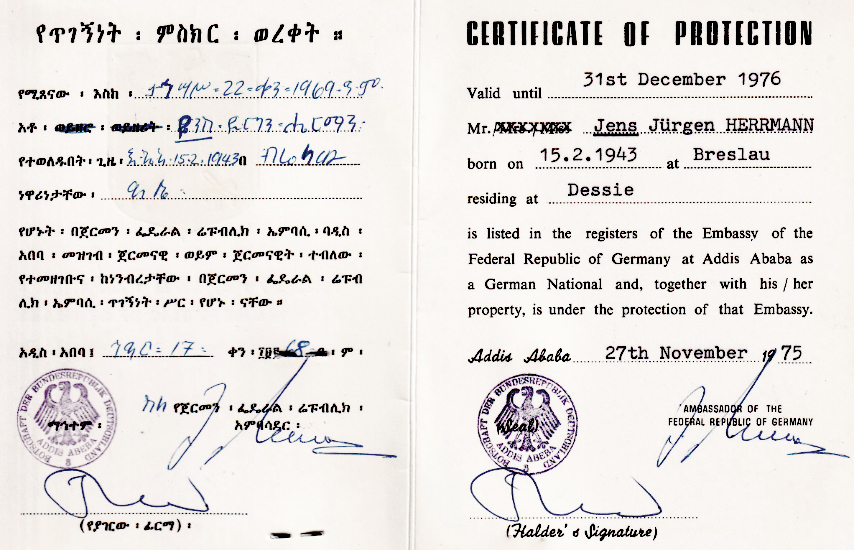 የጥገኝነት ፡ ምስክር ፡ ወረቀት ።
የሚጸናው ፡ እስከ ፡ ታኅሣሥ 22 ቀን 1969 ዓ.ም.
አቶ ፡ ወይዘሮ ፡ ወይዘሪት ፡ የንስ ዩርገን ሔርማን
የተወለዱበት ፡ ጊዜ ፡ 15.2.1943 በ
ነዋሪነታቸው ፡ ደሴ
የሆኑት ፡ በጀርመን ፡ ፌዴራል ፡ ሬፑብሊክ ፡ ኤምባሲ ፡ ባዲስ ፡
አበባ ፡ መዝገብ ፡ ጀርመናዊ ፡ ወይም ፡ ጀርመናዊት ፡ ተብለው ፡
የተመዘገቡና ፡ ከነንብረታቸው ፡ በጀርመን ፡ ፌዴራል ፡ ሬፑብ
ሊክ ፡ ኤምባሲ ፡ ጥገኝነት ፡ ሥር ፡ የሆኑ ፡ ናቸው ።
አዲስ ፡ አበባ ፤ ኅዳር 17 ቀን ፡ ፲፱፻68 ዓ ፡ ም ፡
ስለ የጀርመን ፡ ፌዴራል ፡ ሬፑብሊክ ፡
ማኅተም ፡ አምባሳደር ፡
BOTSCHAFT DER BUNDESREPUBLIK DEUTSCHLAND
ADDIS ABEBA
8
(የያዥው ፡ ፊርማ) ፡
CERTIFICATE OF PROTECTION
Valid until 31st December 1976
Mr. Jens Jürgen HERRMANN
born on 15.2.1943 at Breslau
residing at Dessie
is listed in the registers of the Embassy of the
Federal Republic of Germany at Addis Ababa as
a German National and, together with his / her
property, is under the protection of that Embassy.
Addis Ababa 27th November 1975
(Seal)
BOTSCHAFT DER BUNDESREPUBLIK DEUTSCHLAND
ADDIS ABEBA
8
AMBASSADOR OF THE
FEDERAL REPUBLIC OF GERMANY
(Halder's Signature)